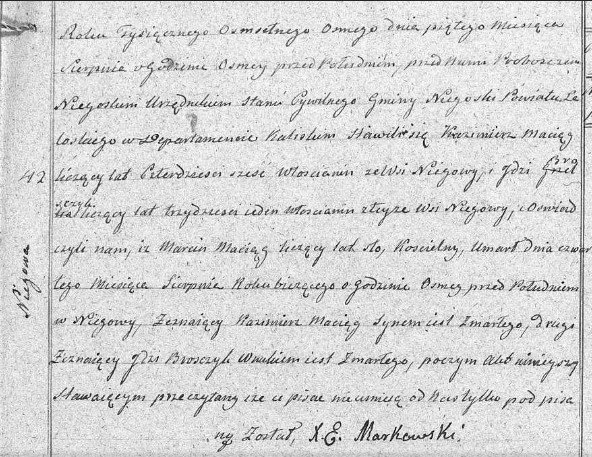 Roku Tysiącznego Osmsetnego Osmego dnia piątego Miesiąca
Sierpnia o Godzinie Osmey przed Południem, przed Nami Proboszczem
Niegoskim Urzędnikiem Stanu Cywilnego Gminy Niegoski Powiatu Le
loskiego w Departamencie Kaliskim Stawili się Kazimierz Maciąg
42
liczący lat Czterdzieści sześć Włościanin ze Wsi Niegowy, i Idzi Bro
szczyk liczący lat trzydzieści ieden Włościanin z teyże Wsi Niegowy, i Oswiad
Niegowa
czyli nam, iż Marcin Maciąg liczący lat sto, Kościelny, Umarł dnia czwar
tego Miesiąca Sierpnia Roku bieżącego o godzinie Osmey przed Południem
w Niegowy, Zeznaiący Kazimierz Maciąg Synem iest Zmarłego, drugi
Zeznaiący Idzi Brosczyk Wnukiem iest Zmarłego, poczym Akt ninieyszy
Stawaiącym przeczytany iże ci pisać nieumieią od Nas tylko podpisa
ny Został, X. E. Markowski.